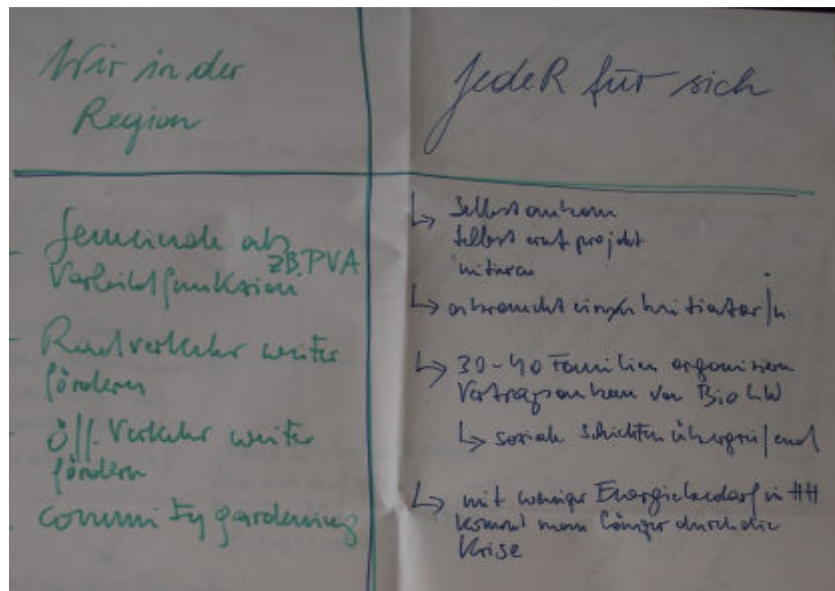 Wir in der
Region
- Gemeinde als
z.B. PVA
Vorbildfunktion
- Radverkehr weiter
fördern
- öff. Verkehr weiter
fördern
- community gardening
JedeR für sich
↳ Selbst anbauen
Selbst
initiieren
↳ es braucht einen Initiator/in
↳ 30-40 Familien organisieren
Vertragsanbau von Bio LW
↳ soziale Schichten übergreifend
↳ mit weniger Energiebedarf in HH
kommt man länger durch die
Krise